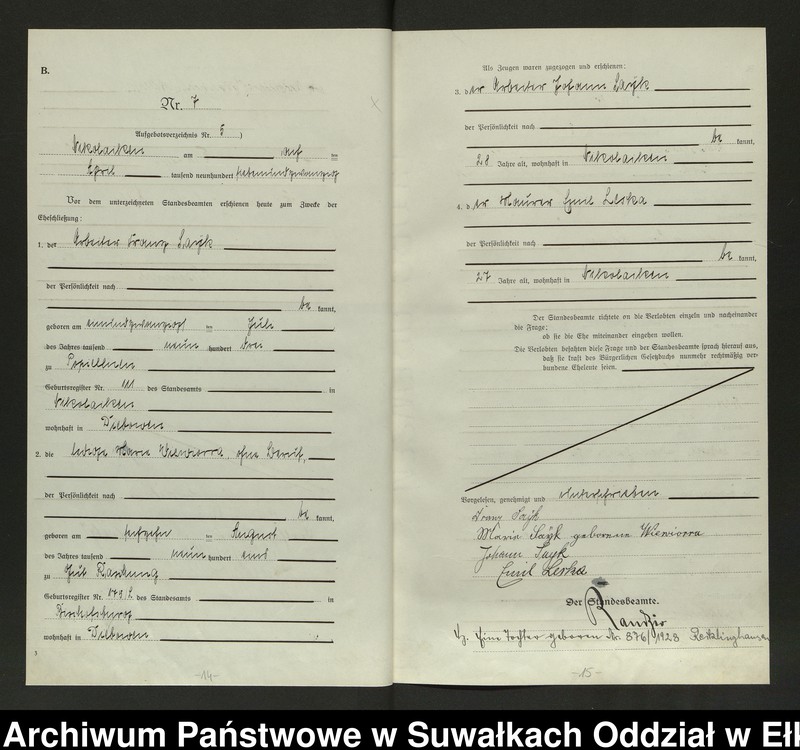 B.
Nr. 7
Aufgebotsverzeichnis Nr. 5 )
Nikolaiken am acht ten
April tausend neunhundert siebenundzwanzig
Vor dem unterzeichneten Standesbeamten erschienen heute zum Zwecke der
Eheschließung:
1. der Arbeiter Franz Sayk
der Persönlichkeit nach
be kannt,
geboren am einundzwanzigst ten Juli
des Jahres tausend neun hundert drei
zu
Geburtsregister Nr. 111 des Standesamts in
Nikolaiken
wohnhaft in
2. die ledige Marie Wiewiorra, ohne Beruf,
der Persönlichkeit nach
be kannt,
geboren am ten August
des Jahres tausend neun hundert eins
zu Gut
Geburtsregister Nr. des Standesamts in
Bischofsburg
wohnhaft in
-14-
Als Zeugen waren zugezogen und erschienen:
3. der Arbeiter Johann Sayk
der Persönlichkeit nach
be kannt,
28 Jahre alt, wohnhaft in Nikolaiken
4. der Maurer Emil Leska
der Persönlichkeit nach
be kannt,
27 Jahre alt, wohnhaft in Nikolaiken
Der Standesbeamte richtete an die Verlobten einzeln und nacheinander
die Frage:
ob sie die Ehe miteinander eingehen wollen.
Die Verlobten bejahten diese Frage und der Standesbeamte sprach hierauf aus,
daß sie kraft des Bürgerlichen Gesetzbuchs nunmehr rechtmäßig ver-
bundene Eheleute seien.
Vorgelesen, genehmigt und unterschrieben
Franz Sayk
Marie Sayk geborene Wiewiorra
Johann Sayk
Emil Leska
Der Standesbeamte.
Randzio
Eine Tochter geboren Nr. 876/1923 Recklinghausen
-15-
Archiwum Państwowe w Suwałkach Oddział w Ełk